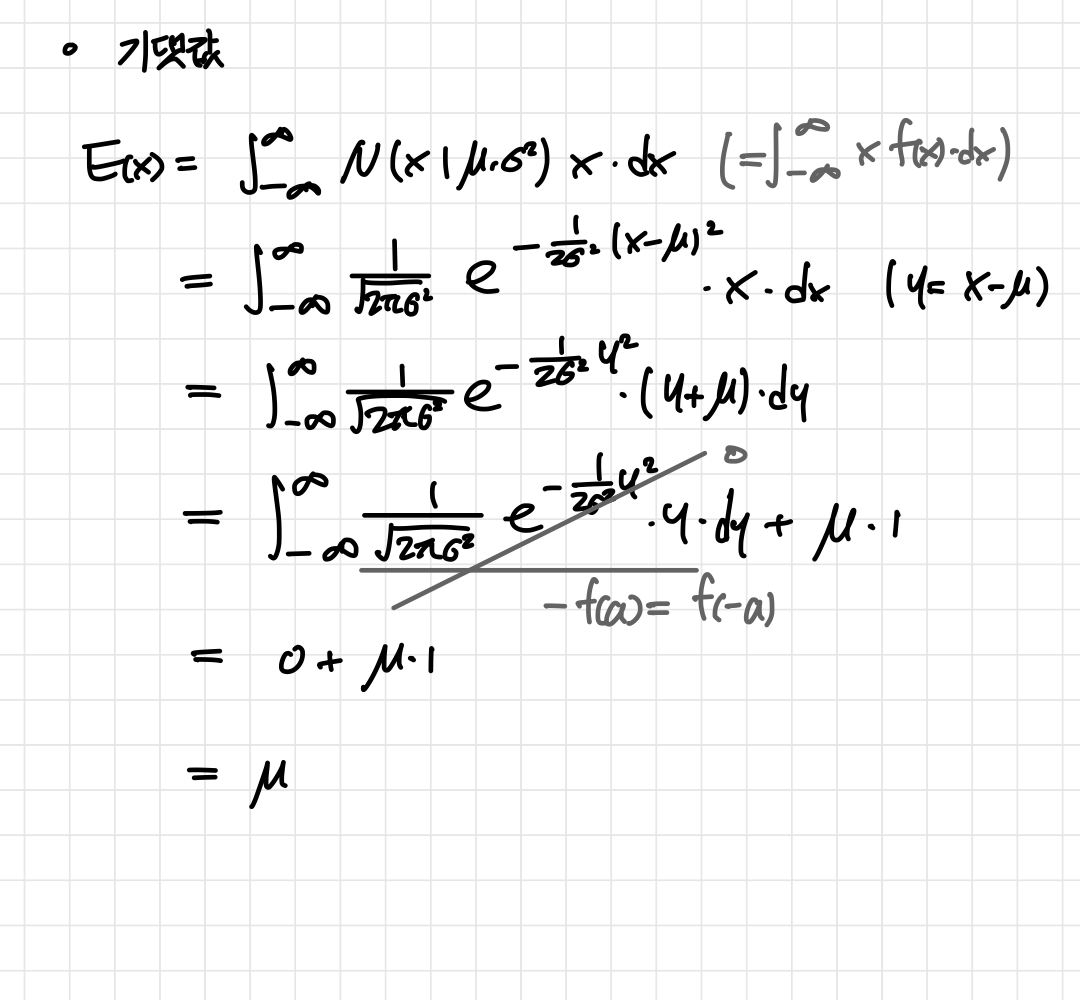 • 기댓값
E(x) = ∫_{-∞}^{∞} N(x|μ,σ²) x · dx (= ∫_{-∞}^{∞} x f(x)·dx)
= ∫_{-∞}^{∞} \frac{1}{\sqrt{2πσ²}} e^{-\frac{1}{2σ²}(x-μ)²} · x · dx (y = x-μ)
= ∫_{-∞}^{∞} \frac{1}{\sqrt{2πσ²}} e^{-\frac{1}{2σ²}y²} · (y+μ) · dy
= ∫_{-∞}^{∞} \frac{1}{\sqrt{2πσ²}} e^{-\frac{1}{2σ²}y²} · y · dy + μ · 1
0
-f(a) = f(-a)
= 0 + μ · 1
= μ